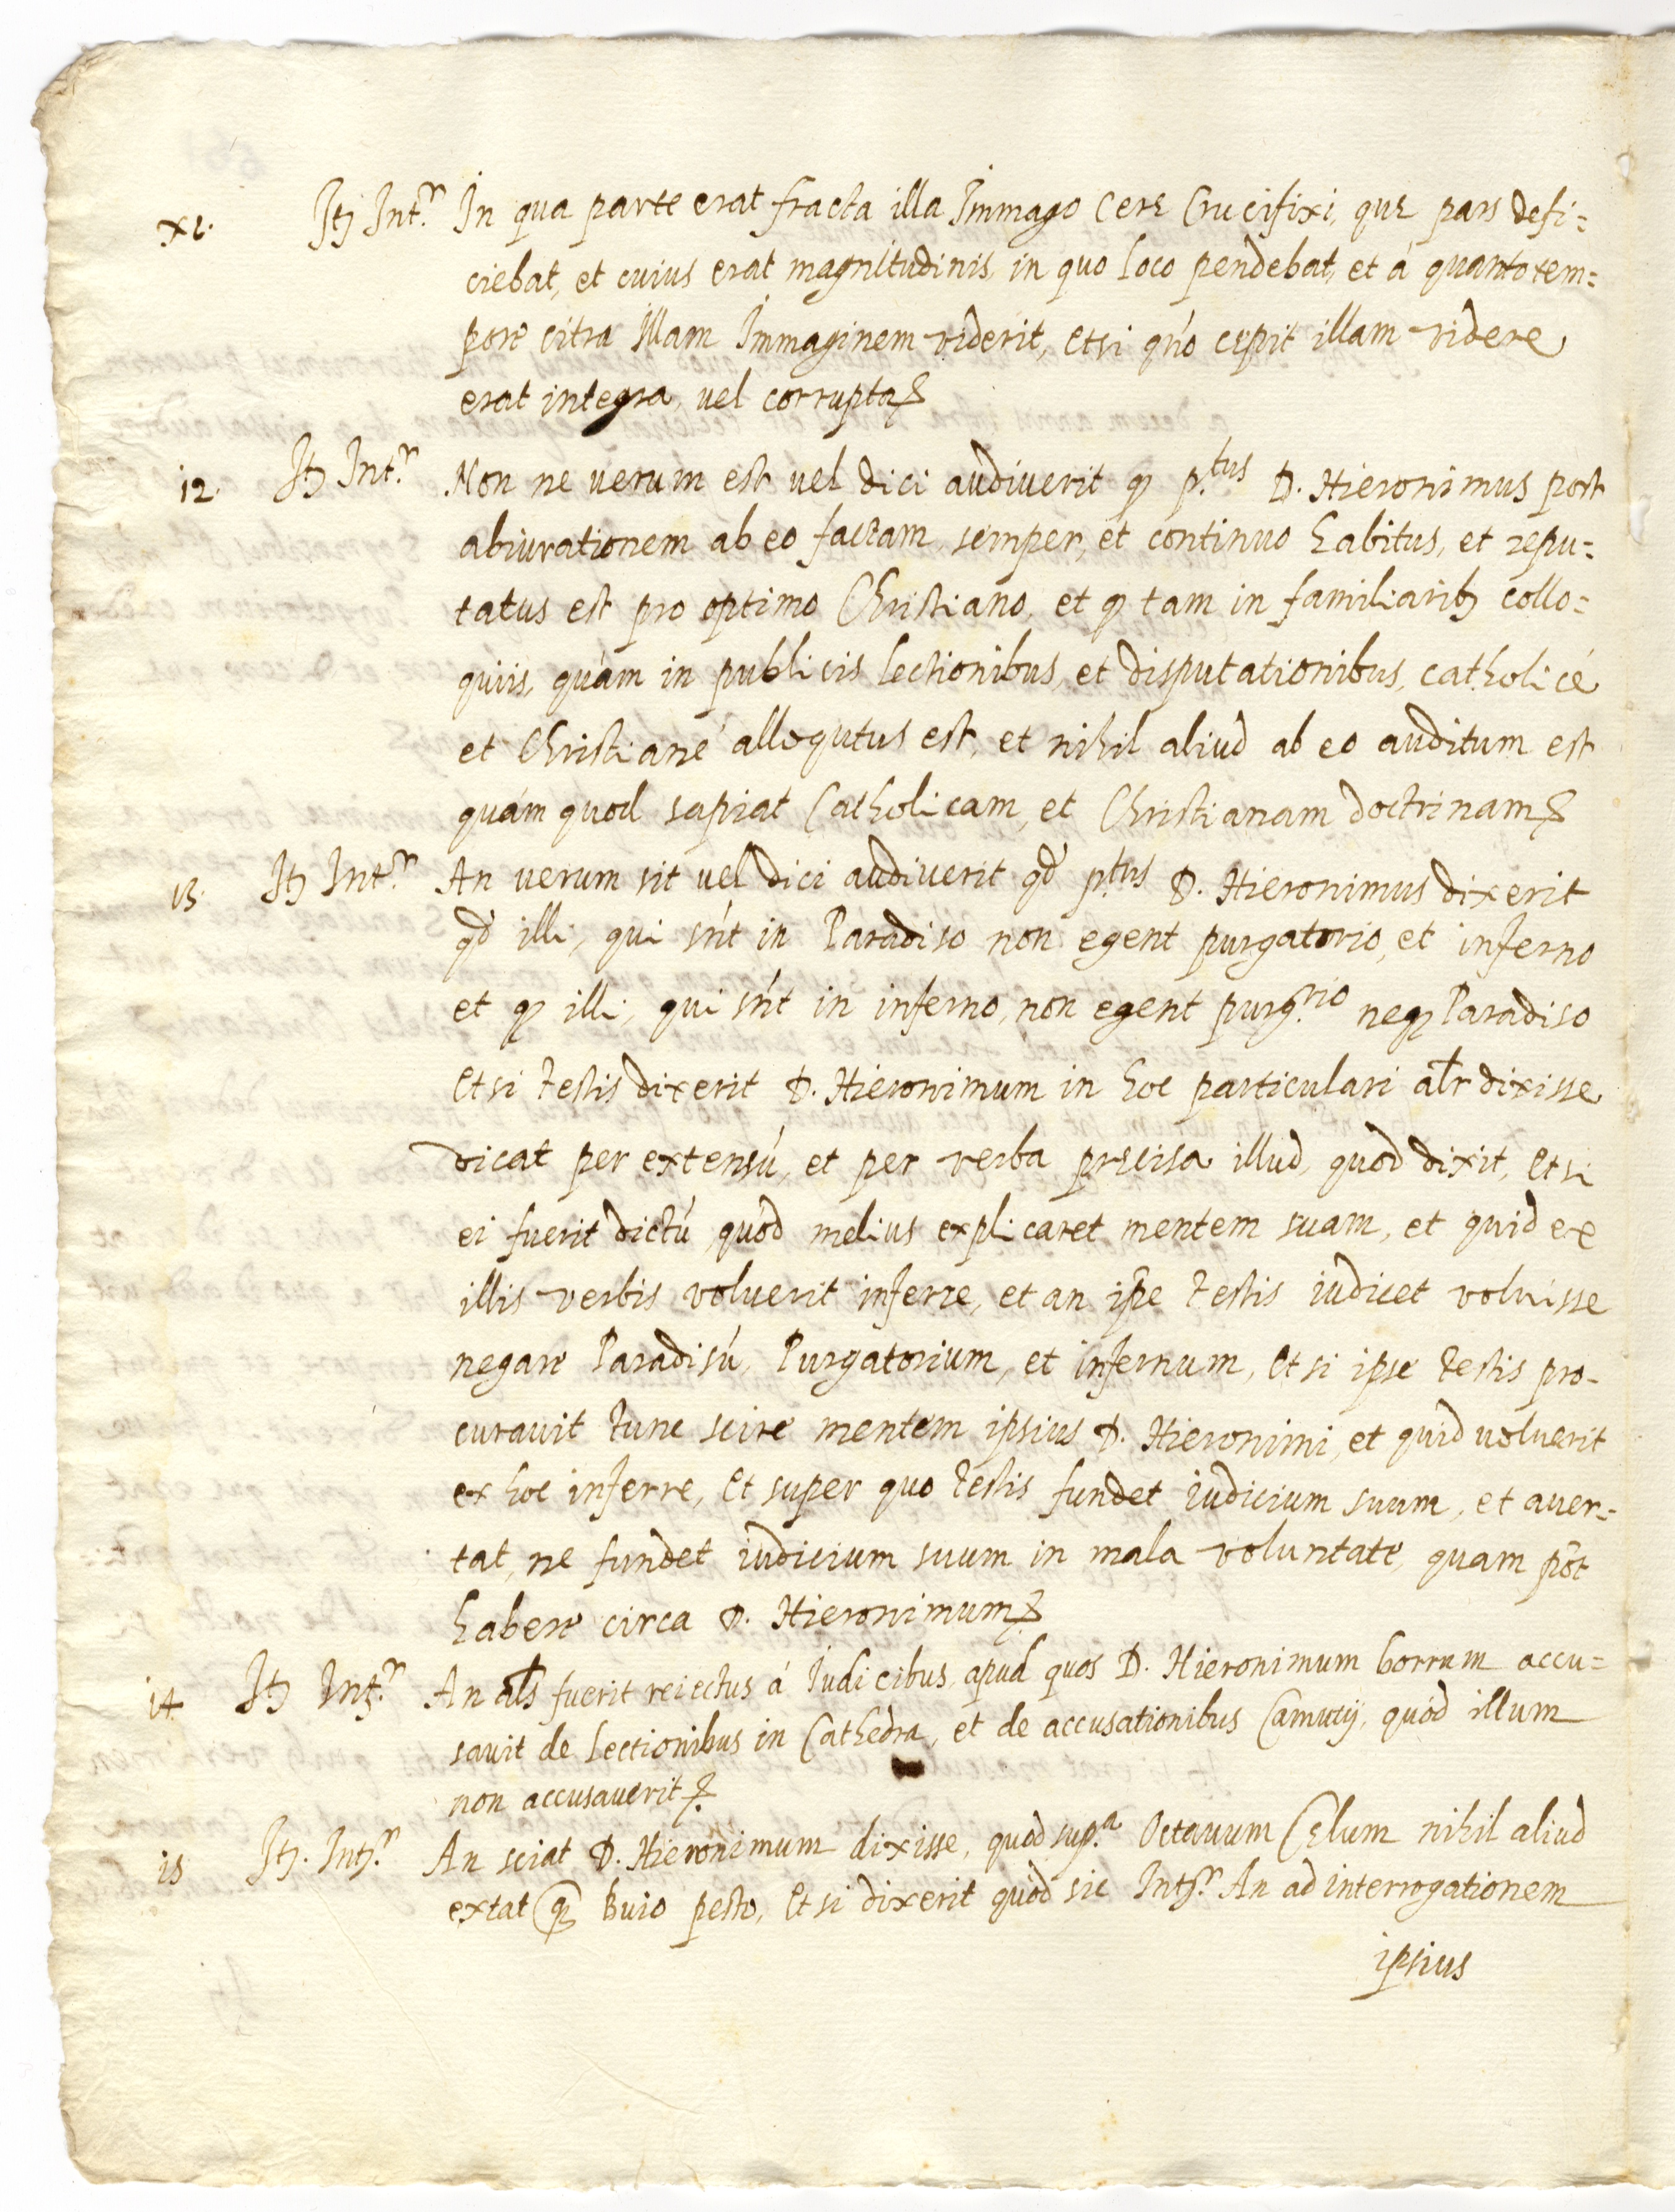 xi. Itȝ Int.r In qua parte erat fracta illa Immago Cerę Crucifixi, quę pars defi=
ciebat, et cuius erat magnitudinis, in quo loco pendebat, et à quanto tem=
pore citra illam Immaginem viderit, et si qn̄o cępit illam videre
erat integra, vel corrupta
12. Itȝ Int.r Non ne verum est vel dici audiverit qɜ p.tus D. Hieronimus post
abiurationem ab eo factam, semper, et continuo habitus, et repu=
tatus est pro optimo Christiano, et qɜ tam in familiaribȝ collo=
quiis, quàm in publicis lectionibus, et disputationibus, catholicé
et Christiané allogutus est, et nihil aliud ab eo auditum est
quám quod sapiat Catholicam, et Christianam doctrinam
13. Itȝ Int.r An verum sit vel dici audiverit qd̄ p.tus D. Hieronimus dixerit
qd̄ illi, qui sn̄t in Paradiso non egent purgatorio, et inferno
et qɜ illi, qui sn̄t in inferno, non egent purg.rio neqɜ Paradiso
Et si testis dixerit D. Hieronimum in hoc particulari alr̄ dixisse
dicat per extensú, et per verba pręcisa illud, quod dixit, Et si
ei fuerit dictú quod melius explicaret mentem suam, et quid ex
illis verbis voluerit inferre, et an ip̄e testis iudicet voluisse
negare Paradisú, Purgatorium, et infernum, Et si ipse testis pro-
curavit tunc scire mentem ipsius D. Hieronimi, et quid voluerit
ex hoc inferre, Et super quo testis fundet iudicium suum, et aver=
tat, ne fundet iudicium suum in mala voluntate, quam pōt
habere circa D. Hieronimum
14 Itȝ Intȝ.r An als̄ fuerit reiectus á Iudicibus, apud quos D. Hieronimum borrum accu=
savit de lectionibus in Cathedra, et de accusationibus Camutij, quód illum
non accusaverit
15 Itȝ. Intȝ.r An sciat D. Hieronimum dixisse, quod sup.a Octavum Cęlum nihil aliud
extat qȝ Buio pesto, Et si dixerit quòd sic Intȝ.r An ad interrogationem
ipsius